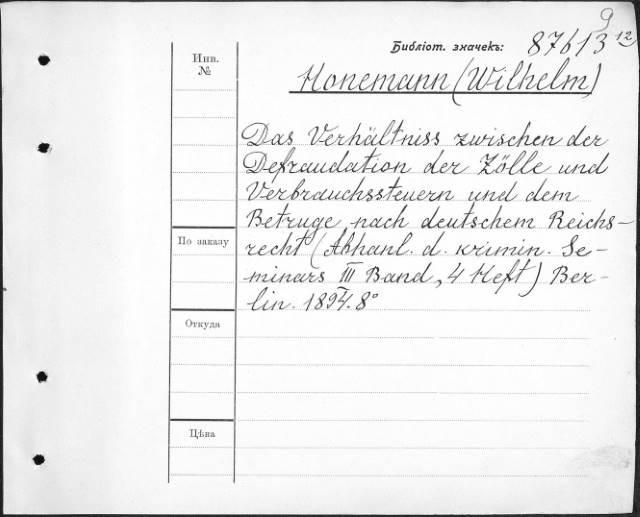 9
Библіот. значекъ: 87613 12
Инв.
№
Honemann (Wilhelm)
Das Verhältniss zwischen der
Defraudation der Zölle und
Verbrauchssteuern und dem
Betruge nach deutschem Reichs-
По заказу
recht (Abhanl. d. krimin. Se-
minars III Band, 4 Heft) Ber-
lin. 1894. 8°
Откуда
Цѣна